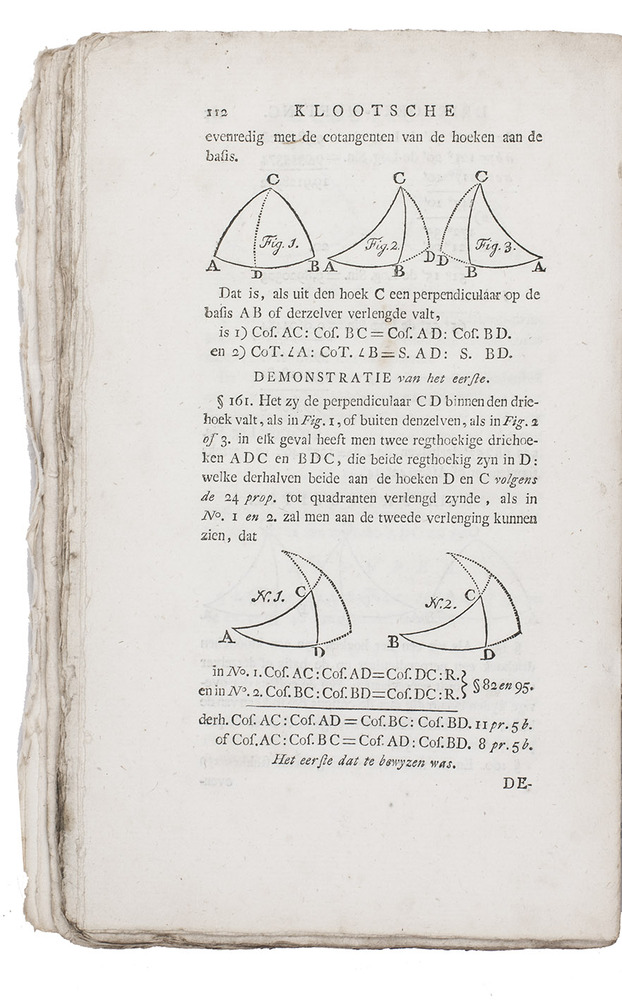 112 KLOOTSCHE
evenredig met de cotangenten van de hoeken aan de
baſis.
C C C
Fig. 1. Fig. 2. Fig. 3.
A D B A B D D B A
Dat is, als uit den hoek C een perpendiculaar op de
baſis A B of derzelver verlengde valt,
is 1) Coſ. AC: Coſ. BC = Coſ. AD: Coſ. BD.
en 2) CoT. ∠A: CoT. ∠B = S. AD: S. BD.
DEMONSTRATIE van het eerſte.
§ 161. Het zy de perpendiculaar C D binnen den drie-
hoek valt, als in Fig. 1, of buiten denzelven, als in Fig. 2
of 3. in elk geval heeft men twee regthoekige driehoe-
ken ADC en BDC, die beide regthoekig zyn in D:
welke derhalven beide aan de hoeken D en C volgens
de 24 prop. tot quadranten verlengd zynde, als in
No. 1 en 2. zal men aan de tweede verlenging kunnen
zien, dat
N. 1. C N. 2. C
A D B D
in No. 1. Coſ. AC: Coſ. AD = Coſ. DC: R.
en in No. 2. Coſ. BC: Coſ. BD = Coſ. DC: R.} § 82 en 95.
derh. Coſ. AC: Coſ. AD = Coſ. BC: Coſ. BD. 11 pr. 5 b.
of Coſ. AC: Coſ. BC = Coſ. AD: Coſ. BD. 8 pr. 5 b.
Het eerſte dat te bewyzen was.
DE-